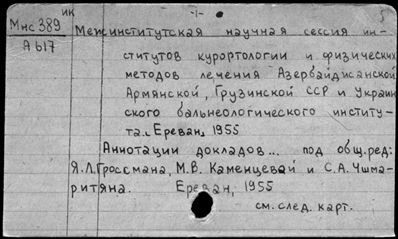 ИК
Мнс 389
А 617
-1-
5
Межинститутская научная сессия ин-
ститутов курортологии и физических
методов лечения Азербайджанской
Армянской, Грузинской ССР и Украин
ского бальнеологического институ-
та. Ереван, 1955
Аннотации докладов... под общ.ред:
Я.Л.Гроссмана, М.В. Каменцевой и С.А.Чшма-
ритяна. Ереван, 1955
см. след. карт.